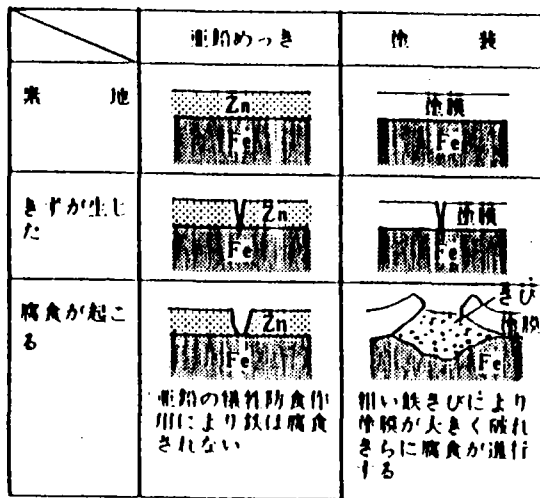 亜鉛めっき
塗　装
素　地
Zn
Fe
塗膜
Fe
きずが生じ
た
Zn
Fe
塗膜
Fe
腐食が起こ
る
Zn
Fe
さび
塗膜
Fe
亜鉛の犠牲防食作
用により鉄は腐食
されない
粗い鉄さびにより
塗膜が大きく破れ
さらに腐食が進行
する